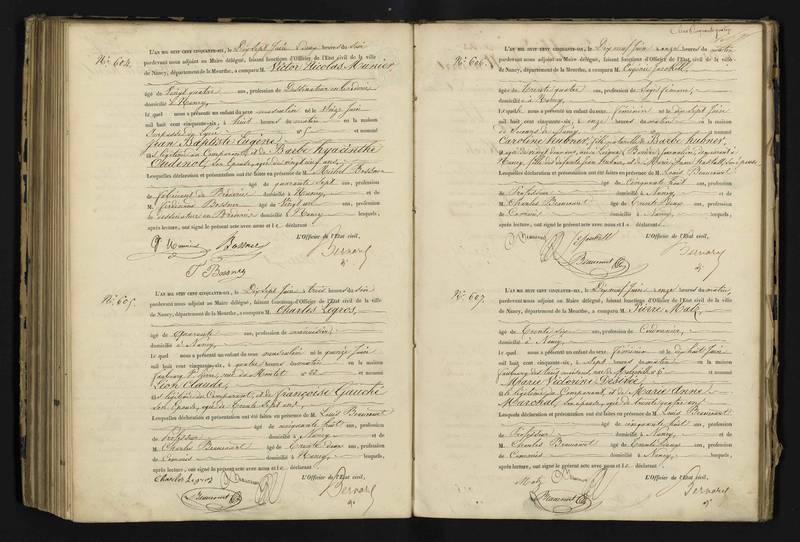 N° 604.
L'AN MIL HUIT CENT CINQUANTE-SIX, le Dix Sept Juin à deux heures du soir
pardevant nous adjoint au Maire délégué, faisant fonctions d'Officier de l'Etat civil de la ville
de Nancy, département de la Meurthe, a comparu M. Victor Nicolas Munier,
âgé de Vingt quatre ans, profession de Dessinateur en broderie
domicilié à Nancy,
Lequel nous a présenté un enfant du sexe masculin né le Seize Juin
mil huit cent cinquante-six, à huit heures du matin en la maison
N° 5 et nommé
Jean Baptiste Eugène,
fils légitime du Comparant, et de Barbe Hyacinthe
Oudenot, son épouse, agée de vingt neuf ans,
Lesquelles déclaration et présentation ont été faites en présence de M. Michel Bossner
âgé de quarante Sept ans, profession
de fabricant de Broderie domicilié à Nancy, et de
M. Ferdinand Bossner âgé de Vingt un ans, profession
de dessinateur en Broderies domicilié à Nancy lesquels,
après lecture, ont signé le présent acte avec nous et le déclarant
L'Officier de l'Etat civil,
Munier Bossner Bernard
F Bossner
N° 605.
L'AN MIL HUIT CENT CINQUANTE-SIX, le Dix Sept Juin à trois heures du soir
pardevant nous adjoint au Maire délégué, faisant fonctions d'Officier de l'Etat civil de la ville
de Nancy, département de la Meurthe, a comparu M. Charles Legros,
âgé de Quarante ans, profession de menuisier,
domicilié à Nancy,
Lequel nous a présenté un enfant du sexe masculin né le quinze Juin
mil huit cent cinquante-six, à quatre heures du matin en la maison
faubourg St Pierre, rue de Montet N° 22 et nommé
Léon Claude,
fils légitime du Comparant, et de Françoise Gauché
son épouse, agée de Trente Sept ans,
Lesquelles déclaration et présentation ont été faites en présence de M. Louis Beaucourt
âgé de cinquante huit ans, profession
de Professeur domicilié à Nancy et de
M. Charles Beaucourt âgé de Trente deux ans, profession
de Commis domicilié à Nancy, lesquels,
après lecture, ont signé le présent acte avec nous et le déclarant
L'Officier de l'Etat civil,
Charles Legros Beaucourt Bernard
Beaucourt Ch
N° 606.
L'AN MIL HUIT CENT CINQUANTE-SIX, le Dix neuf Juin à onze heures du matin
pardevant nous adjoint au Maire délégué, faisant fonctions d'Officier de l'Etat civil de la ville
de Nancy, département de la Meurthe, a comparu M.
âgé de Trente quatre ans, profession de Sage femme,
domicilié à Nancy,
Lequel nous a présenté un enfant du sexe féminin né le dix Sept Juin
mil huit cent cinquante-six, à onze heures du matin en la maison
de Secours de Nancy et nommé
Caroline Hubner, fille naturelle de Barbe Hubner,
Lesquelles déclaration et présentation ont été faites en présence de M. Louis Beaucourt
âgé de Cinquante huit ans, profession
de Professeur domicilié à Nancy et de
M. Charles Beaucourt âgé de Trente Deux ans, profession
de Commis domicilié à Nancy, lesquels,
après lecture, ont signé le présent acte avec nous et le déclarant
L'Officier de l'Etat civil,
Beaucourt Bernard
Beaucourt Ch
N° 607.
L'AN MIL HUIT CENT CINQUANTE-SIX, le Dix neuf Juin à onze heures du matin,
pardevant nous adjoint au Maire délégué, faisant fonctions d'Officier de l'Etat civil de la ville
de Nancy, département de la Meurthe, a comparu M. Pierre Matz,
âgé de Trente six ans, profession de Cordonnier,
domicilié à Nancy,
Lequel nous a présenté un enfant du sexe féminin né le dix huit Juin
mil huit cent cinquante-six, à Sept heures du matin en la maison
N° 6 et nommé
Marie Victorine Désirée,
fille légitime du Comparant, et de Marie Anne
Marchal, son épouse, agée de Trente quatre ans,
Lesquelles déclaration et présentation ont été faites en présence de M. Louis Beaucourt
âgé de cinquante huit ans, profession
de Professeur domicilié à Nancy, et de
M. Charles Beaucourt âgé de Trente Deux ans, profession
de Commis domicilié à Nancy, lesquels,
après lecture, ont signé le présent acte avec nous et le déclarant
L'Officier de l'Etat civil,
Matz Beaucourt Bernard
Beaucourt Ch